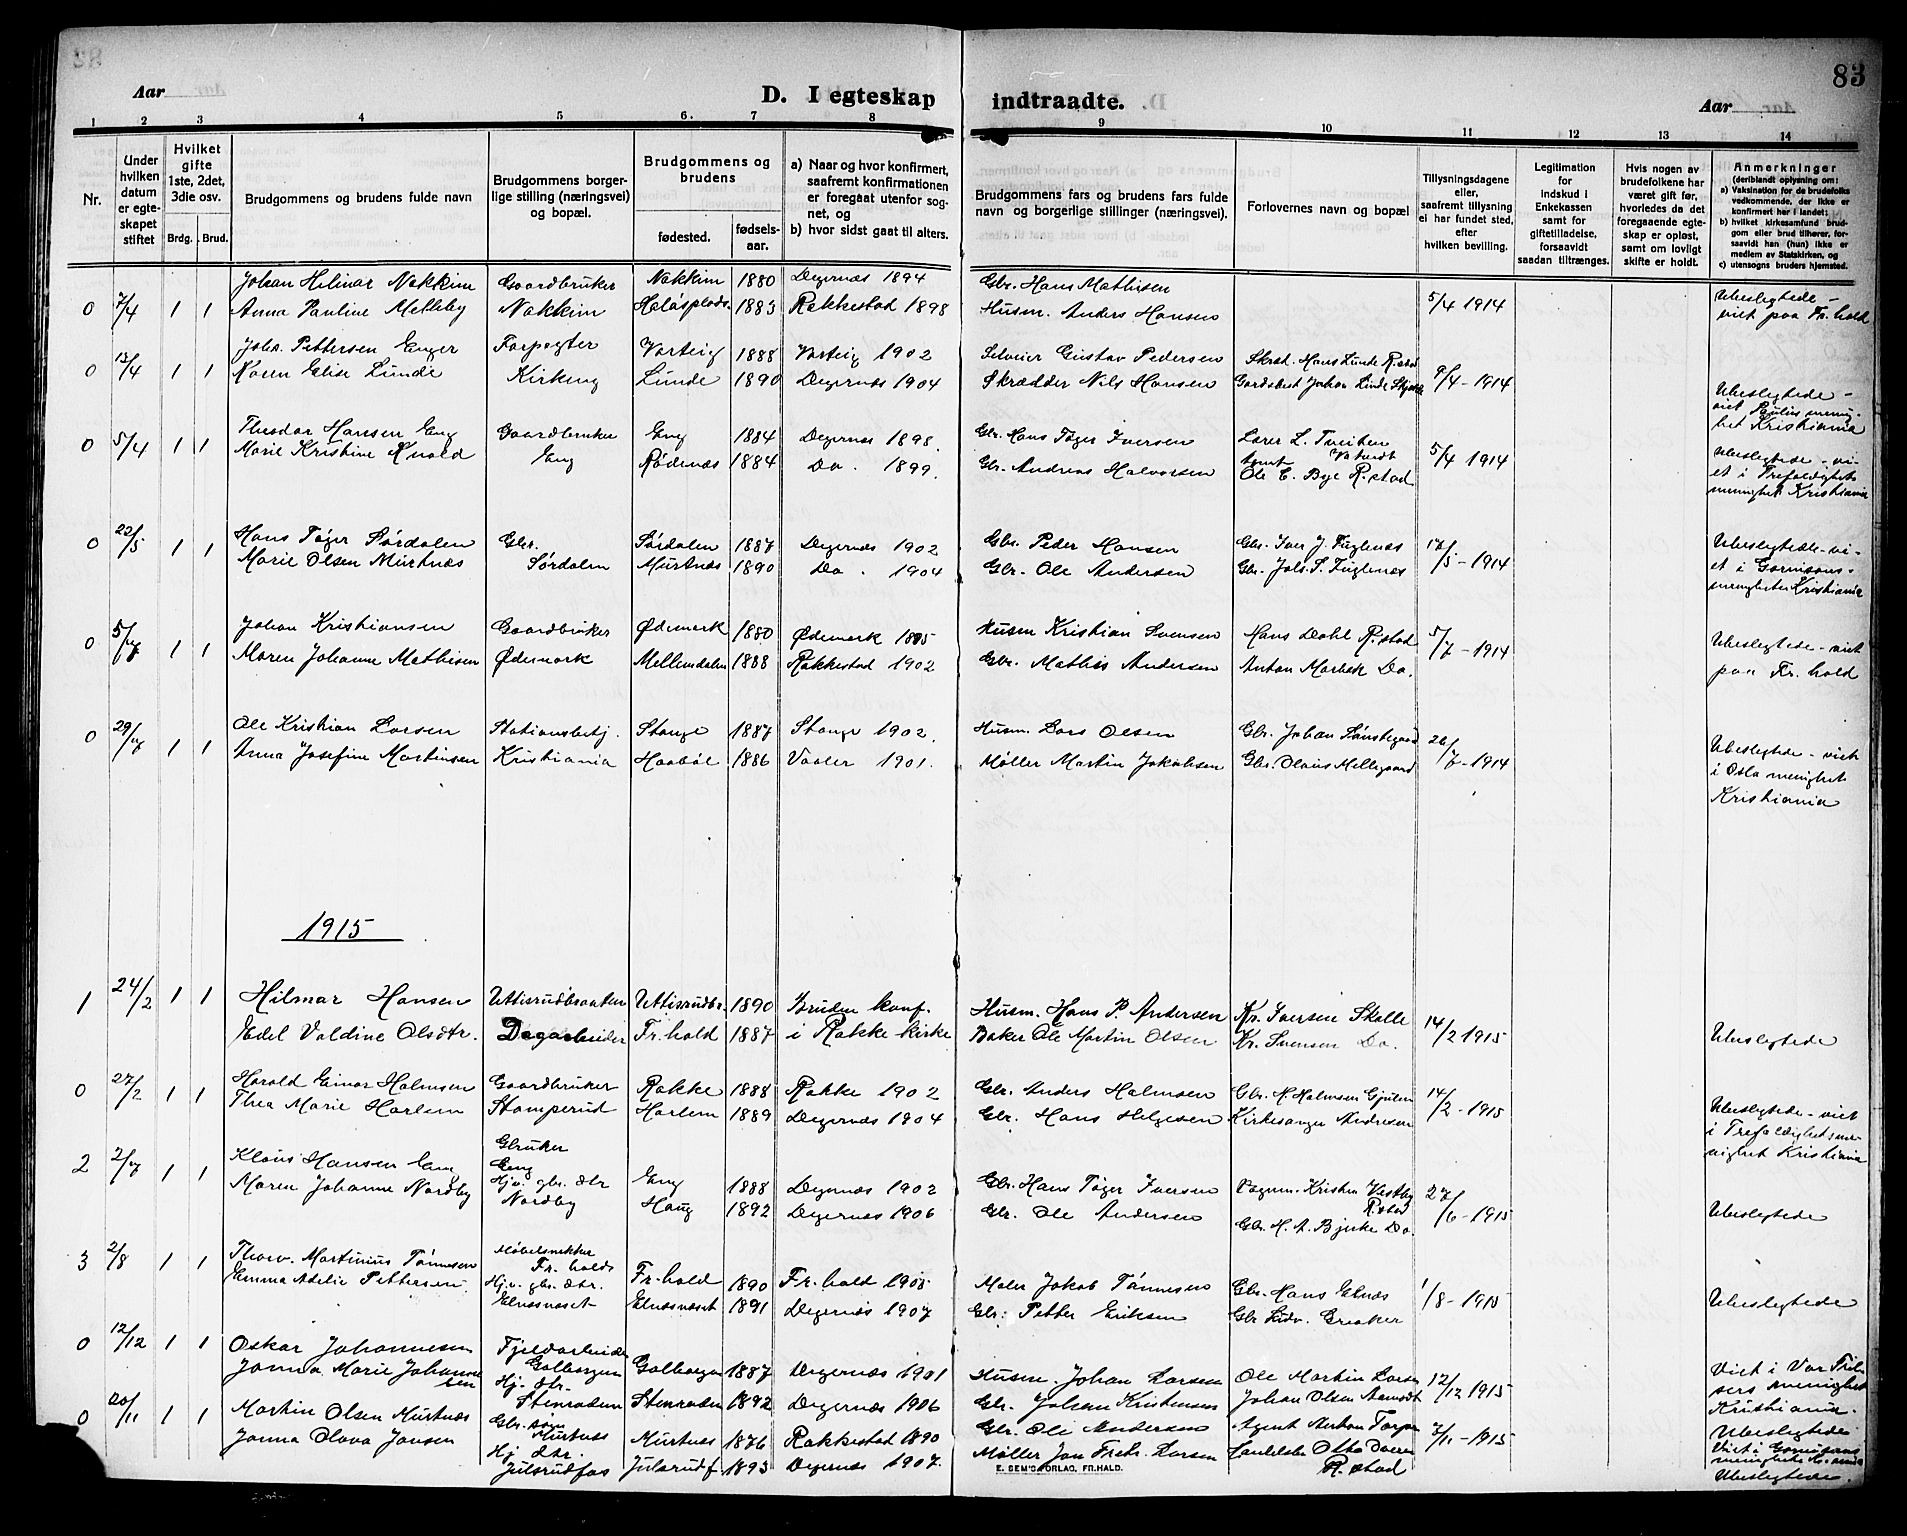 83
Aar
D. I egteskap indtraadte.
Aar
1 2 3 4 5 6. 7 8 9 10 11 12 13 14
Nr.
Under hvilken datum er egteskapet stiftet
Hvilket gifte 1ste, 2det, 3die osv.
Brdg. Brud.
Brudgommens og brudens fulde navn
Brudgommens borgerlige stilling (næringsvei) og bopæl.
Brudgommens og brudens
fødested.
fødselsaar.
a) Naar og hvor konfirmert, saafremt konfirmationen er foregaat utenfor sognet, og
b) hvor sidst gaat til alters.
Brudgommens fars og brudens fars fulde navn og borgerlige stillinger (næringsvei).
Forlovernes navn og bopæl
Tillysningsdagene eller, saafremt tillysning ei har fundet sted, efter hvilken bevilling.
Legitimation for indskud i Enkekassen samt for giftetilladelse, forsaavidt saadan tiltrænges.
Hvis nogen av brudefolkene har været gift før, hvorledes da det foregaaende egteskap er opløst, samt om lovligt skifte er holdt.
Anmerkninger
(deriblandt oplysning om:
a) Vaksination for de brudefolks vedkommende, der ikke er konfirmert her i landet;
b) hvilket kirkesamfund brudgom eller brud tilhører, forsaavidt han (hun) ikke er medlem av Statskirken, og
c) utensogns bruders hjemsted.
0 7/4 1 1 Johan Hilmar Nakkim Gaardbruker Nakkim 1880 Degernæs 1894 Gbr. Hans Mathisen 5/4 1914 Ubeslegtede -
Anna Pauline Melleby Nakkim 1883 Rakkestad 1898 Husm. Anders Hansen viet paa Fr. hald
0 13/4 1 1 Johs. Pettersen Enger Forpagter Varteig 1888 Varteig 1902 Gustav Pedersen Skræd. Hans Lunde R.stad 9/4 - 1914 Ubeslegtede -
Karen Elise Lunde Kirkeng Lunde 1890 Degernæs 1904 Skrædder Nils Hansen Johan Lunde viet Paulus menighet Kristiania
0 5/4 1 1 Theodor Hansen Eng Gaardbruker Eng 1884 Degernæs 1898. Gbr. Hans Tøger Iversen Lærer L. Tveiten 5/4 1914 Ubeslegtede - viet i Trefoldighets
Marie Kristine Knold Eng Rødenæs 1884 Do. 1899. Gbr. Andreas Halvorsen Ole E. Bye R.stad menighet Kristiania
0 22/5 1 1 Hans Tøger Sørdalen Gbr. Sørdalen 1887 Degernæs 1902 Gbr. Peder Hansen Gbr. Iver J. Fuglenæs 17/5 - 1914 Ubeslegtede - viet i Garnisons-
Marie Olsen Murtnæs Sørdalen Murtnæs 1890 Do. 1904 Gbr. Ole Andersen Gbr. Johs. S. Fuglenæs menigheten Kristiania
0 5/7 1 1 Johan Kristiansen Gaardbruker Ødemark 1880 Ødemark 1895 Husm Kristian Svensen Hans Dahl R.stad 5/7 - 1914 Ubeslegtede - viet
Maren Johanne Mathisen Ødemark Mellemdalen 1888 Rakkestad 1902 Gbr. Mathis Andersen Anton Morbek Do. paa Fr. hald
0 29/7 1 1 Ole Kristian Larsen Stationsbetj. Stange 1887 Stange 1902. Husm. Lars Olsen Gbr. Johan 26/7 - 1914 Ubeslegtede - viet
Anna Josefine Martinsen Kristiania Haabøl 1886 Vaaler 1901. Møller Martin Jakobsen Gbr. Olaus Mellegaard i Oslo menighet
Kristiania
1915
1 24/2 1 1 Hilmar Hansen Uttisrudbraaten 1890 Bruden konf. Husm. Hans P. Andersen Kr. Iversen Skolle 14/2 1915 Ubeslegtede
Edel Valdine Olsdtr. Dagarbeider Fr. hald 1887 i Rakke kirke Baker Ole Martin Olsen Kr. Svensen Do.
0 27/2 1 1 Harald Einar Halmsen Gaardbruker Rakke 1888 Rakke 1902 Gbr. Anders Halmsen Gbr. H. Halmsen 14/2 - 1915 Ubeslegtede - viet
Thea Marie Harlem Stamperud Harlem 1889 Degernæs 1904 Gbr. Hans Helgesen Kirkesanger Andresen i Trefoldighetsmenighet Kristiania
2 2/7 1 1 Klaus Hansen Eng Gbruker Eng Eng 1888 Degernæs 1902 Gbr. Hans Tøger Iversen Kristen Vestby R.stad 27/6 - 1915 Ubeslegtede
Maren Johanne Nordby Hjv. gbr. dtr Nordby Haug 1892 Degernæs 1906 Gbr. Ole Andersen Gbr. H. A. Bjerke Do.
3 2/8 1 1 Thorv. Martinius Tønnesen Møbelsnekker Fr. hald Fr. hald 1890 Fr. hald 1905 Maler Jakob Tønnesen Gbr. Hans Elnæs 1/8 - 1915 Ubeslegtede
Emma Adelie Pettersen Hjv. gbr. dtr. Elnæsnæset Elnæsnæset 1891 Degernæs 1907 Gbr. Petter Eriksen Gbr Ludv. Greaker
0 12/12 1 1 Oskar Johannesen Fjeldarbeider Galborgen Galborgen 1887 Degernæs 1901 Husm. Johan Larsen Ole Martin Larsen 12/12 1915 Viet i Vor Frelsers menighet
Janna Marie Johannesen Hj. dtr. Stenraden Stenraden 1892 Degernæs 1906 Gbr. Johan Kristensen Johan Olsen Aamodt Kristiania. Ubeslegtede
0 20/11 1 1 Martin Olsen Murtnæs Gbr. søn Murtnæs Murtnæs 1876 Rakkestad 1890 Gbr. Ole Andersen Agent Anton Torper 7/11 - 1915 Viet i Garnisons
Janna Olava Jansen Hj. dtr. Julsrudfos Julsrudf. 1893 Degernæs 1907. Møller Jan Fredr. Larsen Otto R.stad menighet Kr.ania
Ubeslegtede.
E. SEM'S FORLAG, FR.HALD.